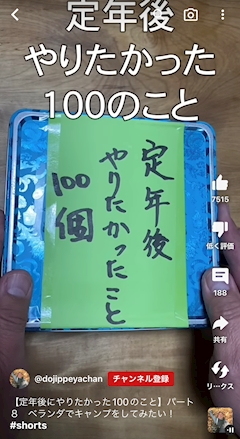 定年後
やりたかった
100のこと
定年後
やりたかったこと
100個
7515
低く評価
188
共有
リ…クス
@dojippeyachan チャンネル登録
【定年後にやりたかった100のこと】パート
8 ベランダでキャンプをしてみたい！
#shorts